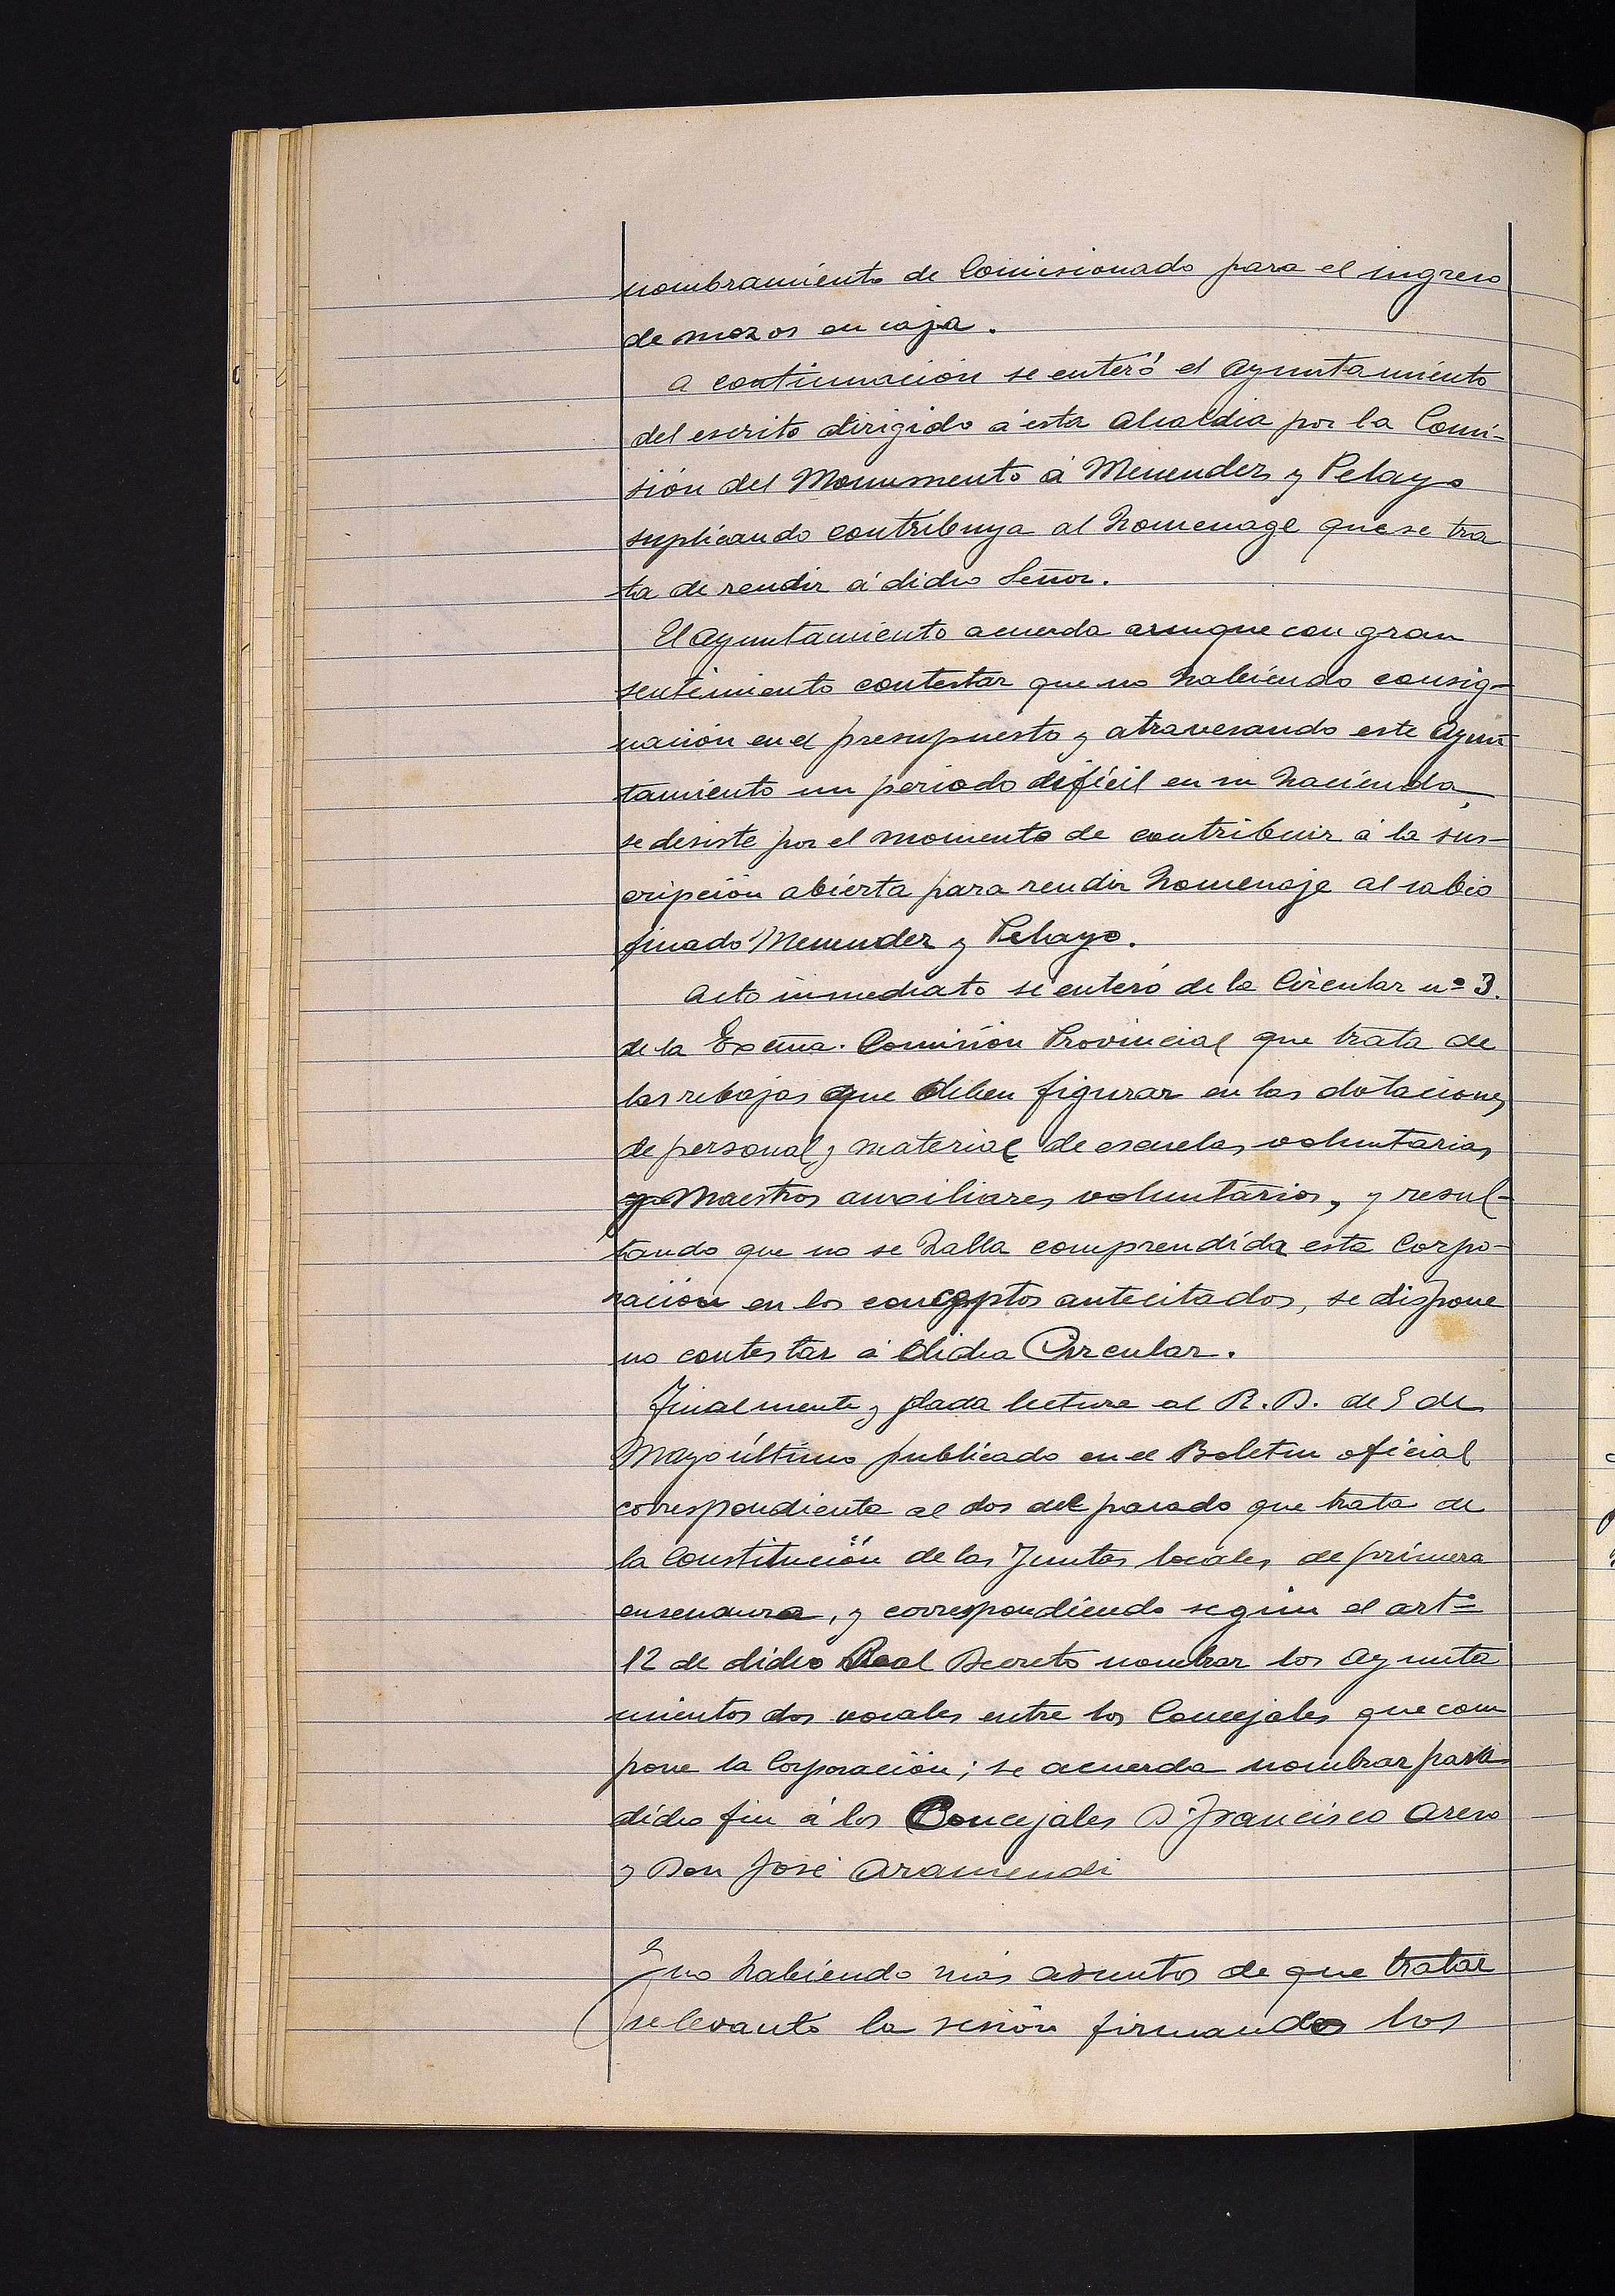 nombramiento de Comisionado para el ingreso
de mozos en caja.
A continuación se enteró el Ayuntamiento
del escrito dirigido á esta Alcaldia por la Comi-
sión del Monumento á Menendez y Pelayo
suplicando contribuya al homenage que se tra
ta de rendir á dicho Señor.
El Ayuntamiento acuerda aunque con gran
sentimiento contestar que no habiendo consig-
nación en el presupuesto y atravesando este Ayun
tamiento un periodo dificil en su hacienda,
se desiste por el momento de contribuir á la sus-
cripción abierta para rendir homenaje al sabio
finado Menendez y Pelayo.
Acto inmediato se enteró de la Circular nº 3.
de la Excma. Comisión Provincial que trata de
las rebajas que deben figurar en las dotaciones
de personal y material de escuelas voluntarias
y Maestros auxiliares voluntarios, y resul-
tando que no se halla comprendida esta Corpo-
ración en los conceptos antecitados, se dispone
no contestar á dicha Circular.
Finalmente y dada lectura al R. D. de 5 de
Mayo último publicado en el Boletin oficial
correspondiente al dos del pasado que trata de
la Constitución de las Juntas locales de primera
ensenanza, y correspondiendo según el artº
12 de dicho Real Decreto nombrar los Ayunta
mientos dos vocales entre los Concejales que com
pone la Corporación; se acuerda nombrar para
dicho fin á los Concejales D. Francisco Areso
y Don José Aramendi
Y no habiendo más asuntos de que tratar
se levantó la sesión firmando los